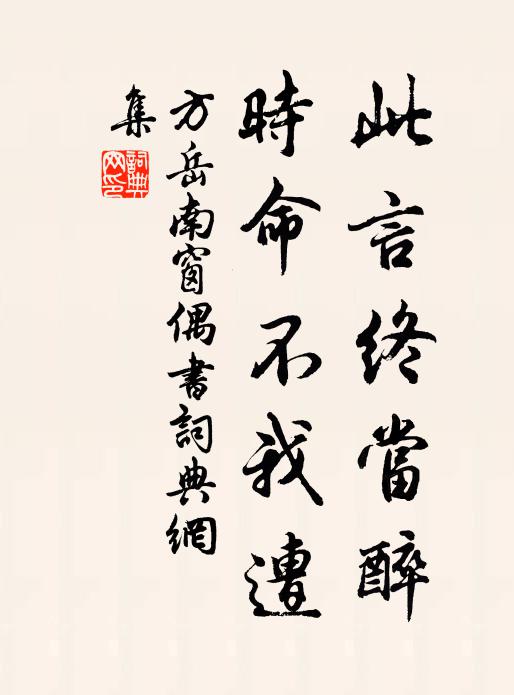 此言終當醉
時命不我遭
方岳南窗偶書詞典網
集
詞典网印